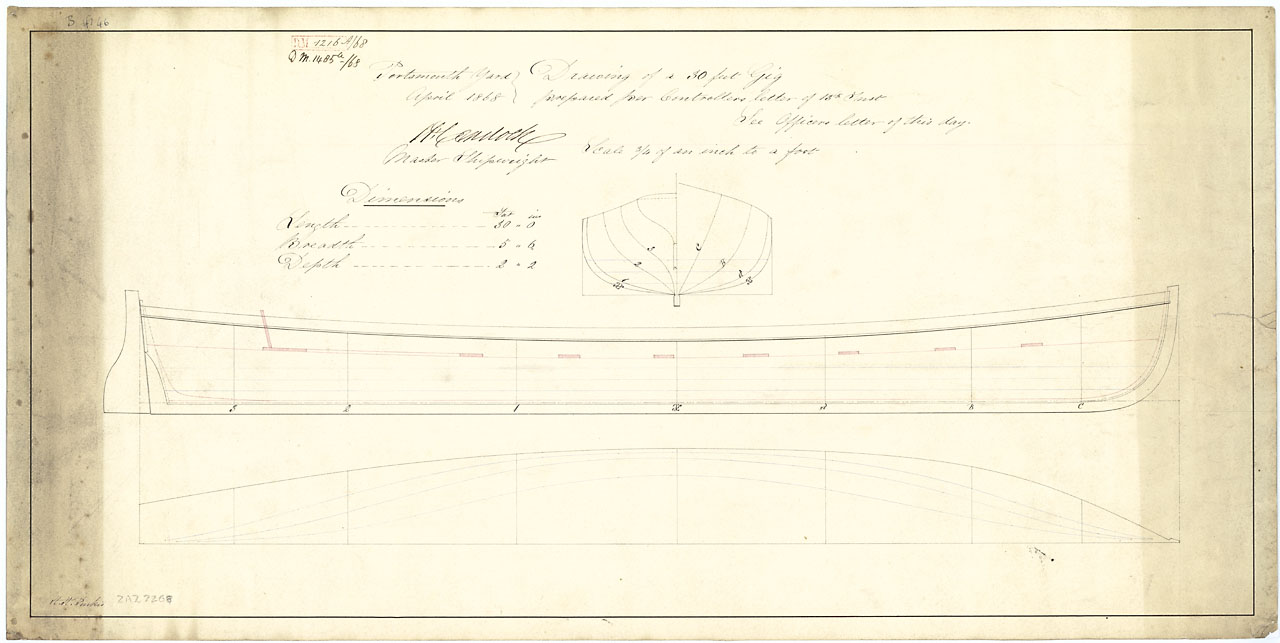 B 4146
1216 A/68
D M. 1485a/68
Portsmouth Yard
April 1868
Drawing of a 30 feet Gig
prepared per Controllers letter of 15th Inst
See Officers letter of this day.
Master Shipwright
Scale 3/4 of an inch to a foot
Dimensions
Feet ins
Length 30 - 0
Breadth 5 - 6
Depth 2 - 2
3 2 C B A
3 2 1 A B C
ZAZ7268